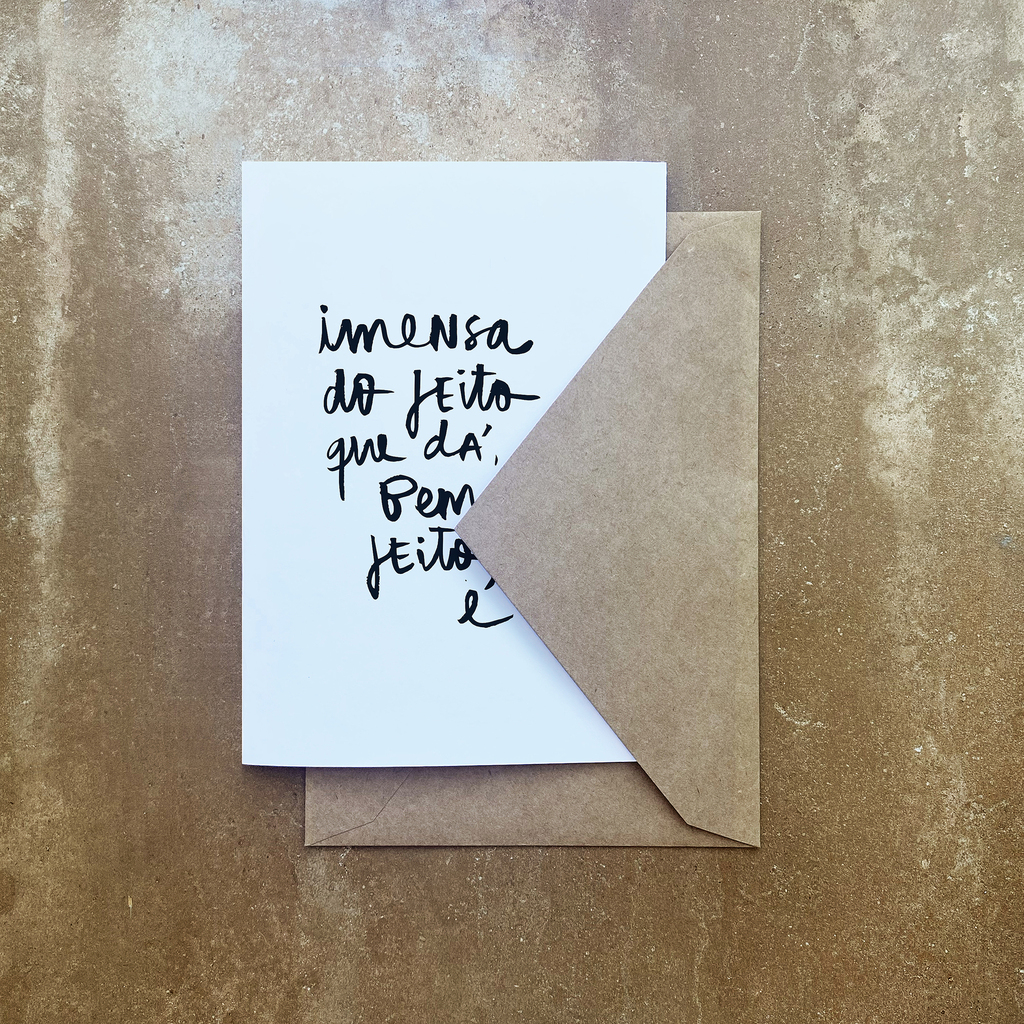 imensa
do jeito
que dá,
bem
jeito,
é